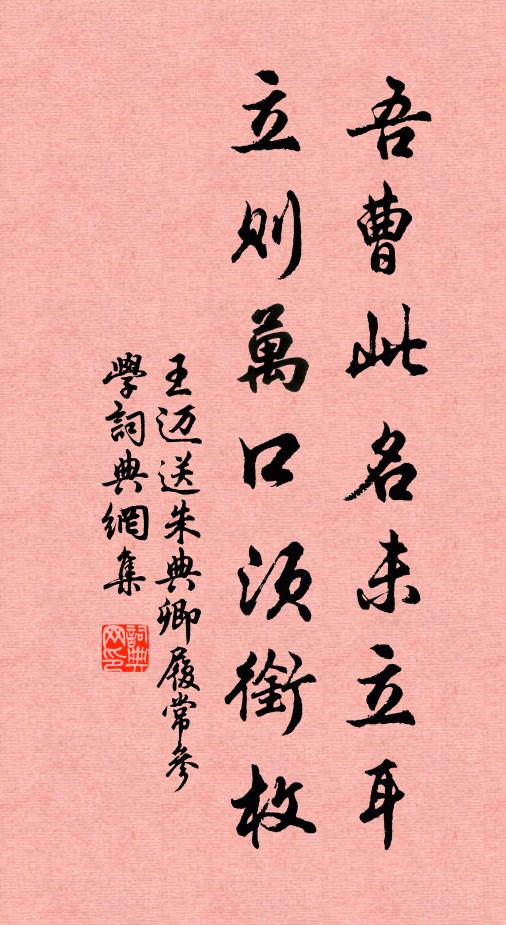 吾曹此名未立耳
立則萬口須銜枚
王迈送朱典卿履常參
學詞典網集
詞典网印